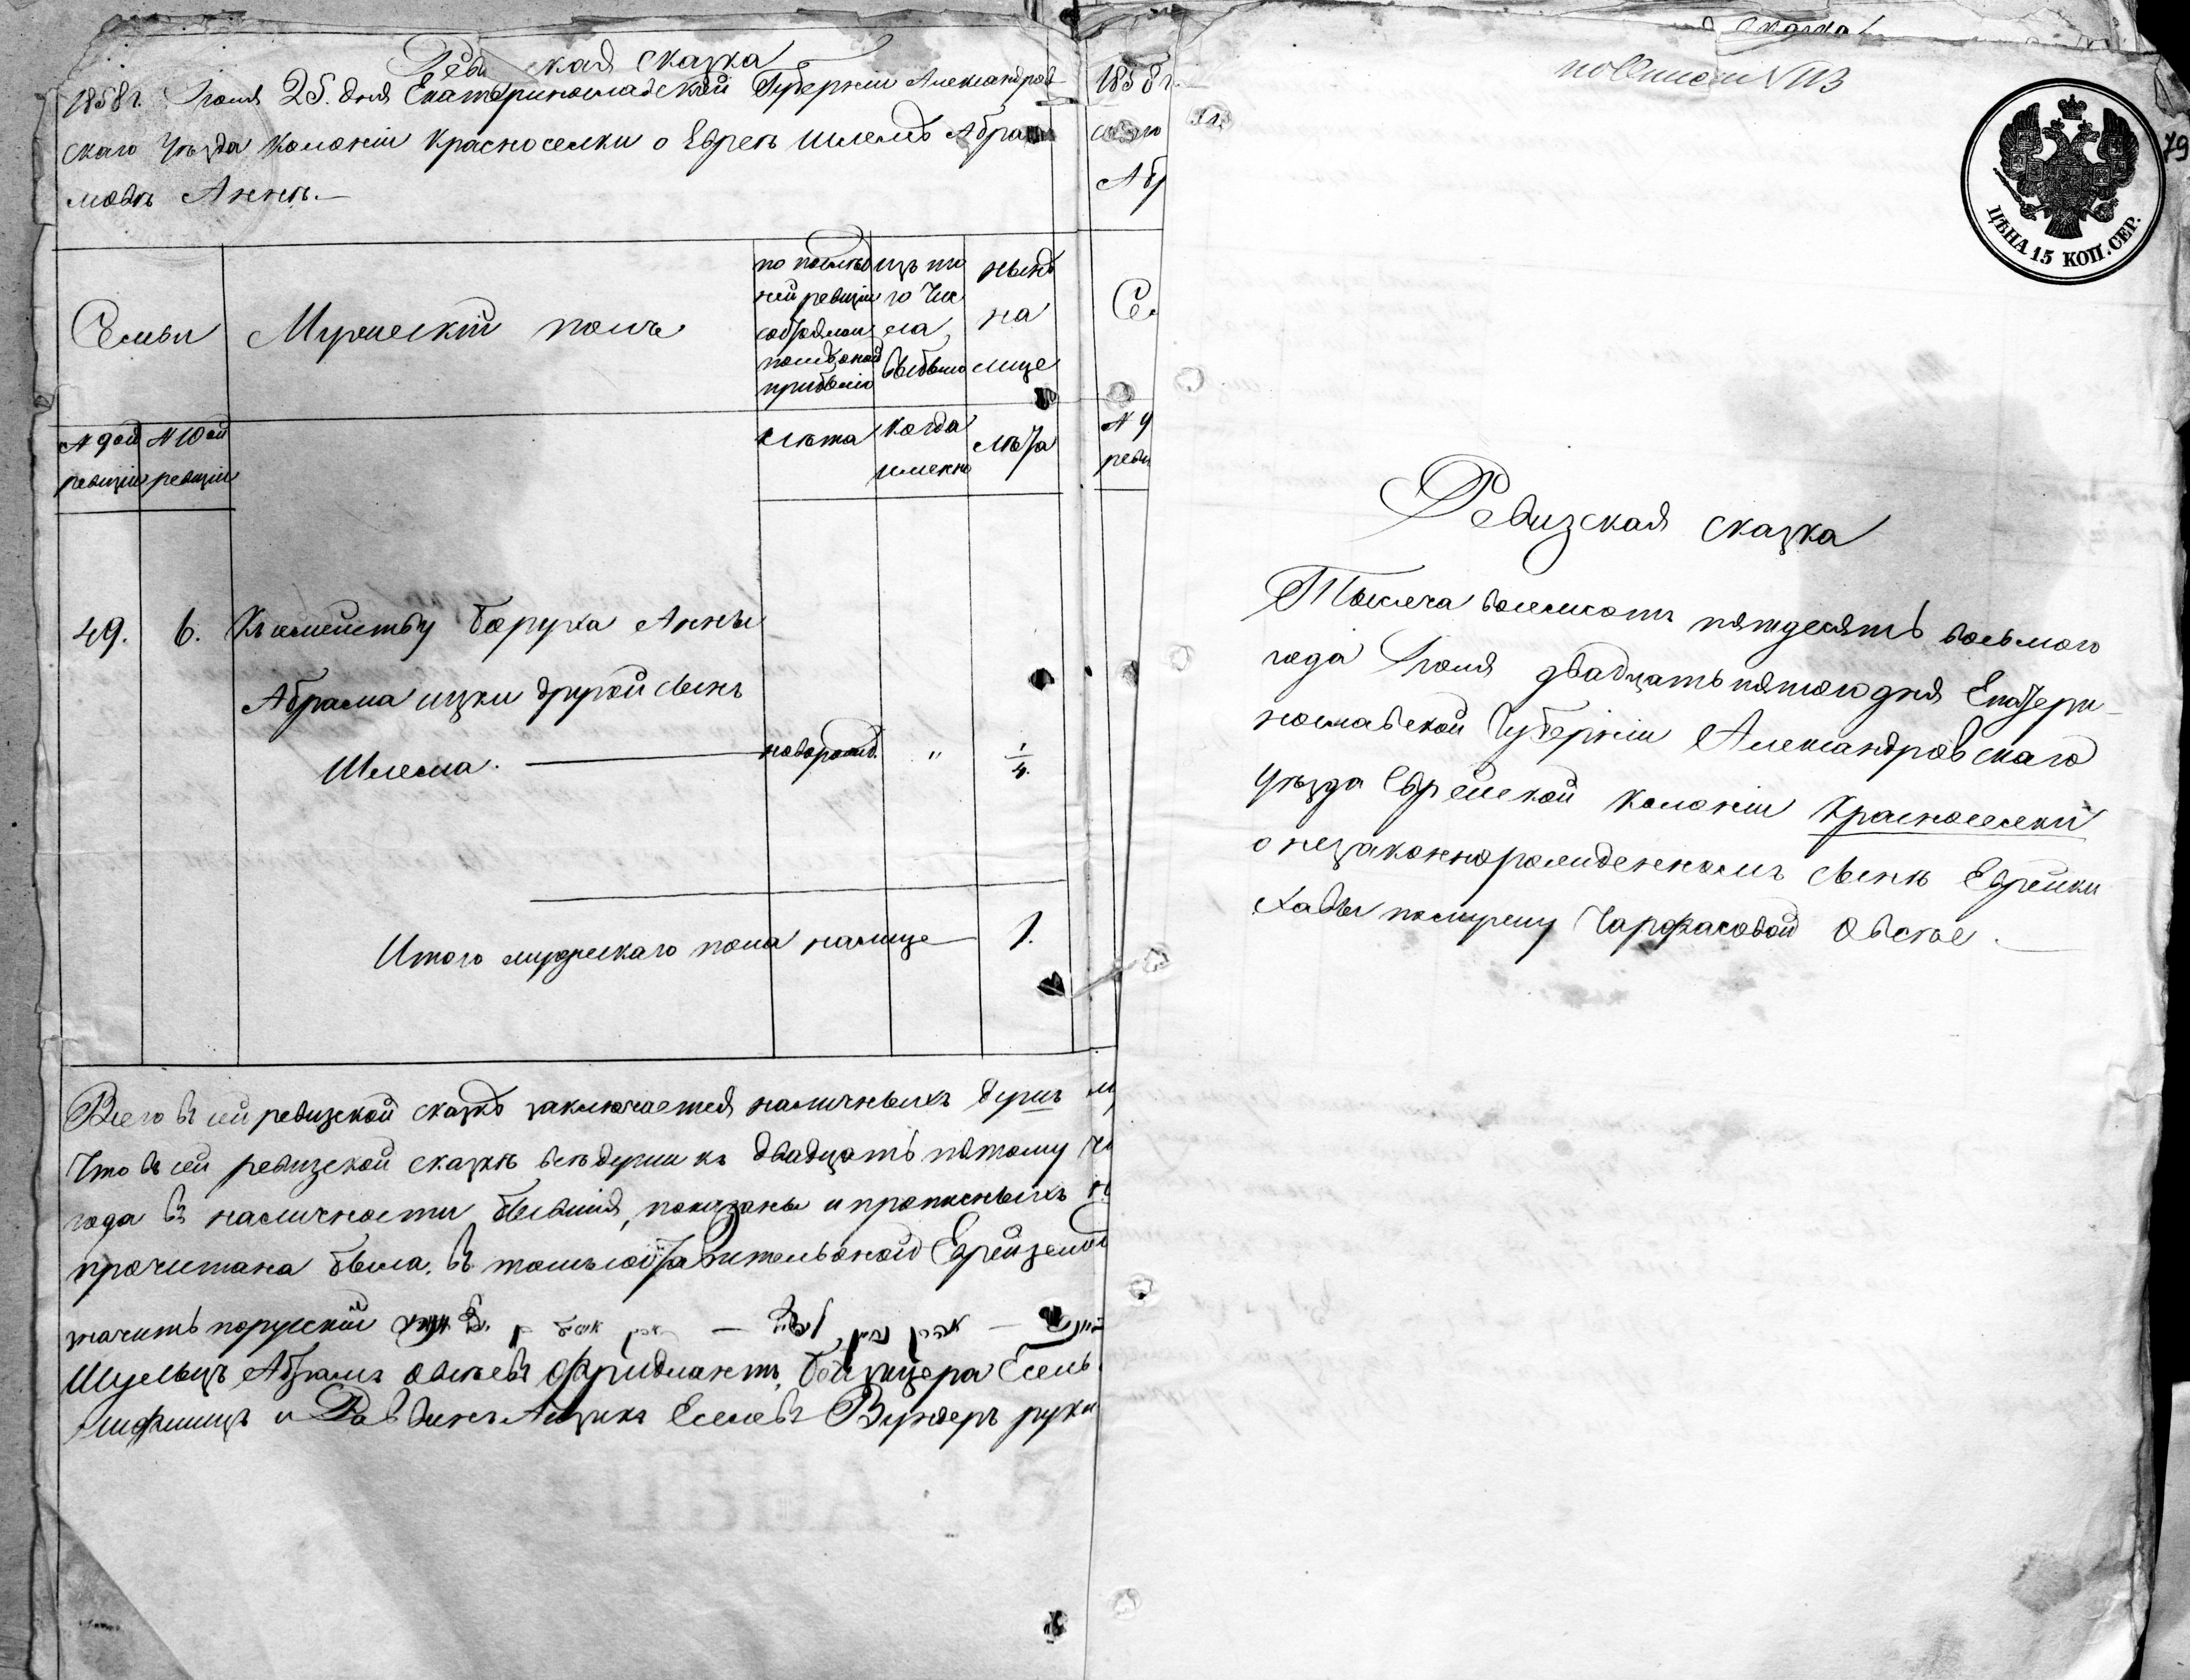 Ревизская сказка
1858 г. Iюля 25. дня Екатеринославской Губернiи Александров-
скаго уѣзда колонiи Красноселки о Евреѣ Шлемѣ Абра
мовѣ Аннѣ.—
Семьи
Мужескiй полъ
по послѣд
ней ревизiи
состояло и
послѣ оной
прибыло
изъ то
го чис
ла
выбыло
нынѣ
на
лице
№ 9ой ревизiи
№ 10ой ревизiи
Лѣта
когда
именно
Лѣта
49. 6. Къ семейству Боруха Анны
Абрама Ицки другой сынъ
Шлема. — новорожд. " 1/4.
Итого мужескаго пола налице — 1.
Всего въ сей ревизской сказкѣ заключается наличныхъ душъ м
Что въ сей ревизской сказкѣ всѣ души къ двадцать пятому
года въ наличности бывшiя, показаны и прописныхъ н
прочитана была. въ томъ
значитъ порусски
Шульцъ Абрамъ Овсѣевъ Фридманъ, Бейзицера Есель
Лифшицъ и Раввинъ Айзикъ Еселевъ Вункеръ руки
1858 г.
Аб
Се
№ 9
реви
сказка
по описи № 113
79
ЦѢНА 15 КОП. СЕР.
Ревизская сказка
Тысяча восемсотъ пятдесятъ восьмого
года Iюля двадцать пятого дня Екатери-
нославской Губернiи Александровскаго
уѣзда Еврейской колонiи Красноселки
о незаконнорожденномъ сынѣ Еврейки
Хавы по мужу Чарфасовой Овсѣе.—